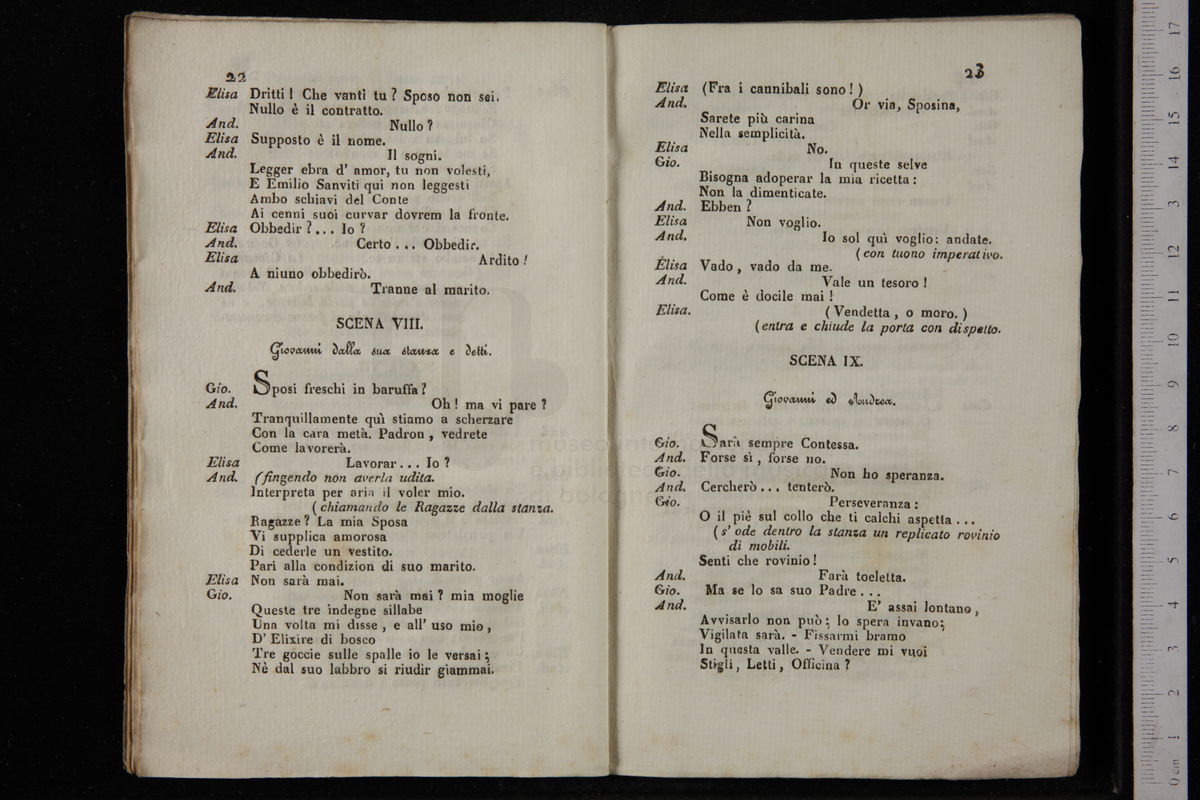 22
Elisa Dritti! Che vanti tu? Sposo non sei.
Nullo è il contratto.
And. Nullo?
Elisa Supposto è il nome.
And. Il sogni.
Legger ebra d' amor, tu non volesti,
E Emilio Sanviti qui non leggesti
Ambo schiavi del Conte
Ai cenni suoi curvar dovrem la fronte.
Elisa Obbedir?... Io?
And. Certo... Obbedir.
Elisa Ardito!
A niuno obbedirò.
And. Tranne al marito.
SCENA VIII.
Giovanni dalla sua stanza e detti.
Gio. Sposi freschi in baruffa?
And. Oh! ma vi pare?
Tranquillamente quì stiamo a scherzare
Con la cara metà. Padron, vedrete
Come lavorerà.
Elisa Lavorar... Io?
And. (fingendo non averla udita.
Interpreta per aria il voler mio.
(chiamando le Ragazze dalla stanza.
Ragazze? La mia Sposa
Vi supplica amorosa
Di cederle un vestito.
Pari alla condizion di suo marito.
Elisa Non sarà mai.
Gio. Non sarà mai? mia moglie
Queste tre indegne sillabe
Una volta mi disse, e all' uso mio,
D' Elixire di bosco
Tre goccie sulle spalle io le versai;
Nè dal suo labbro si riudir giammai.
23
Elisa (Fra i cannibali sono!)
And. Or via, Sposina,
Sarete più carina
Nella semplicità.
Elisa No.
Gio. In queste selve
Bisogna adoperar la mia ricetta:
Non la dimenticate.
And. Ebben?
Elisa Non voglio.
And. Io sol quì voglio: andate.
(con tuono imperativo.
Elisa Vado, vado da me.
And. Vale un tesoro!
Come è docile mai!
Elisa. (Vendetta, o moro.)
(entra e chiude la porta con dispetto.
SCENA IX.
Giovanni ed Andrea.
Gio. Sarà sempre Contessa.
And. Forse sì, forse no.
Gio. Non ho speranza.
And. Cercherò... tenterò.
Gio. Perseveranza:
O il piè sul collo che ti calchi aspetta...
(s' ode dentro la stanza un replicato rovinio
di mobili.
Senti che rovinio!
And. Farà toeletta.
Gio. Ma se lo sa suo Padre...
And. E' assai lontano,
Avvisarlo non può; lo spera invano;
Vigilata sarà. - Fissarmi bramo
In questa valle. - Vendere mi vuoi
Stigli, Letti, Officina?
0 cm 1 2 3 4 5 6 7 8 9 10 11 12 13 14 15 16 17